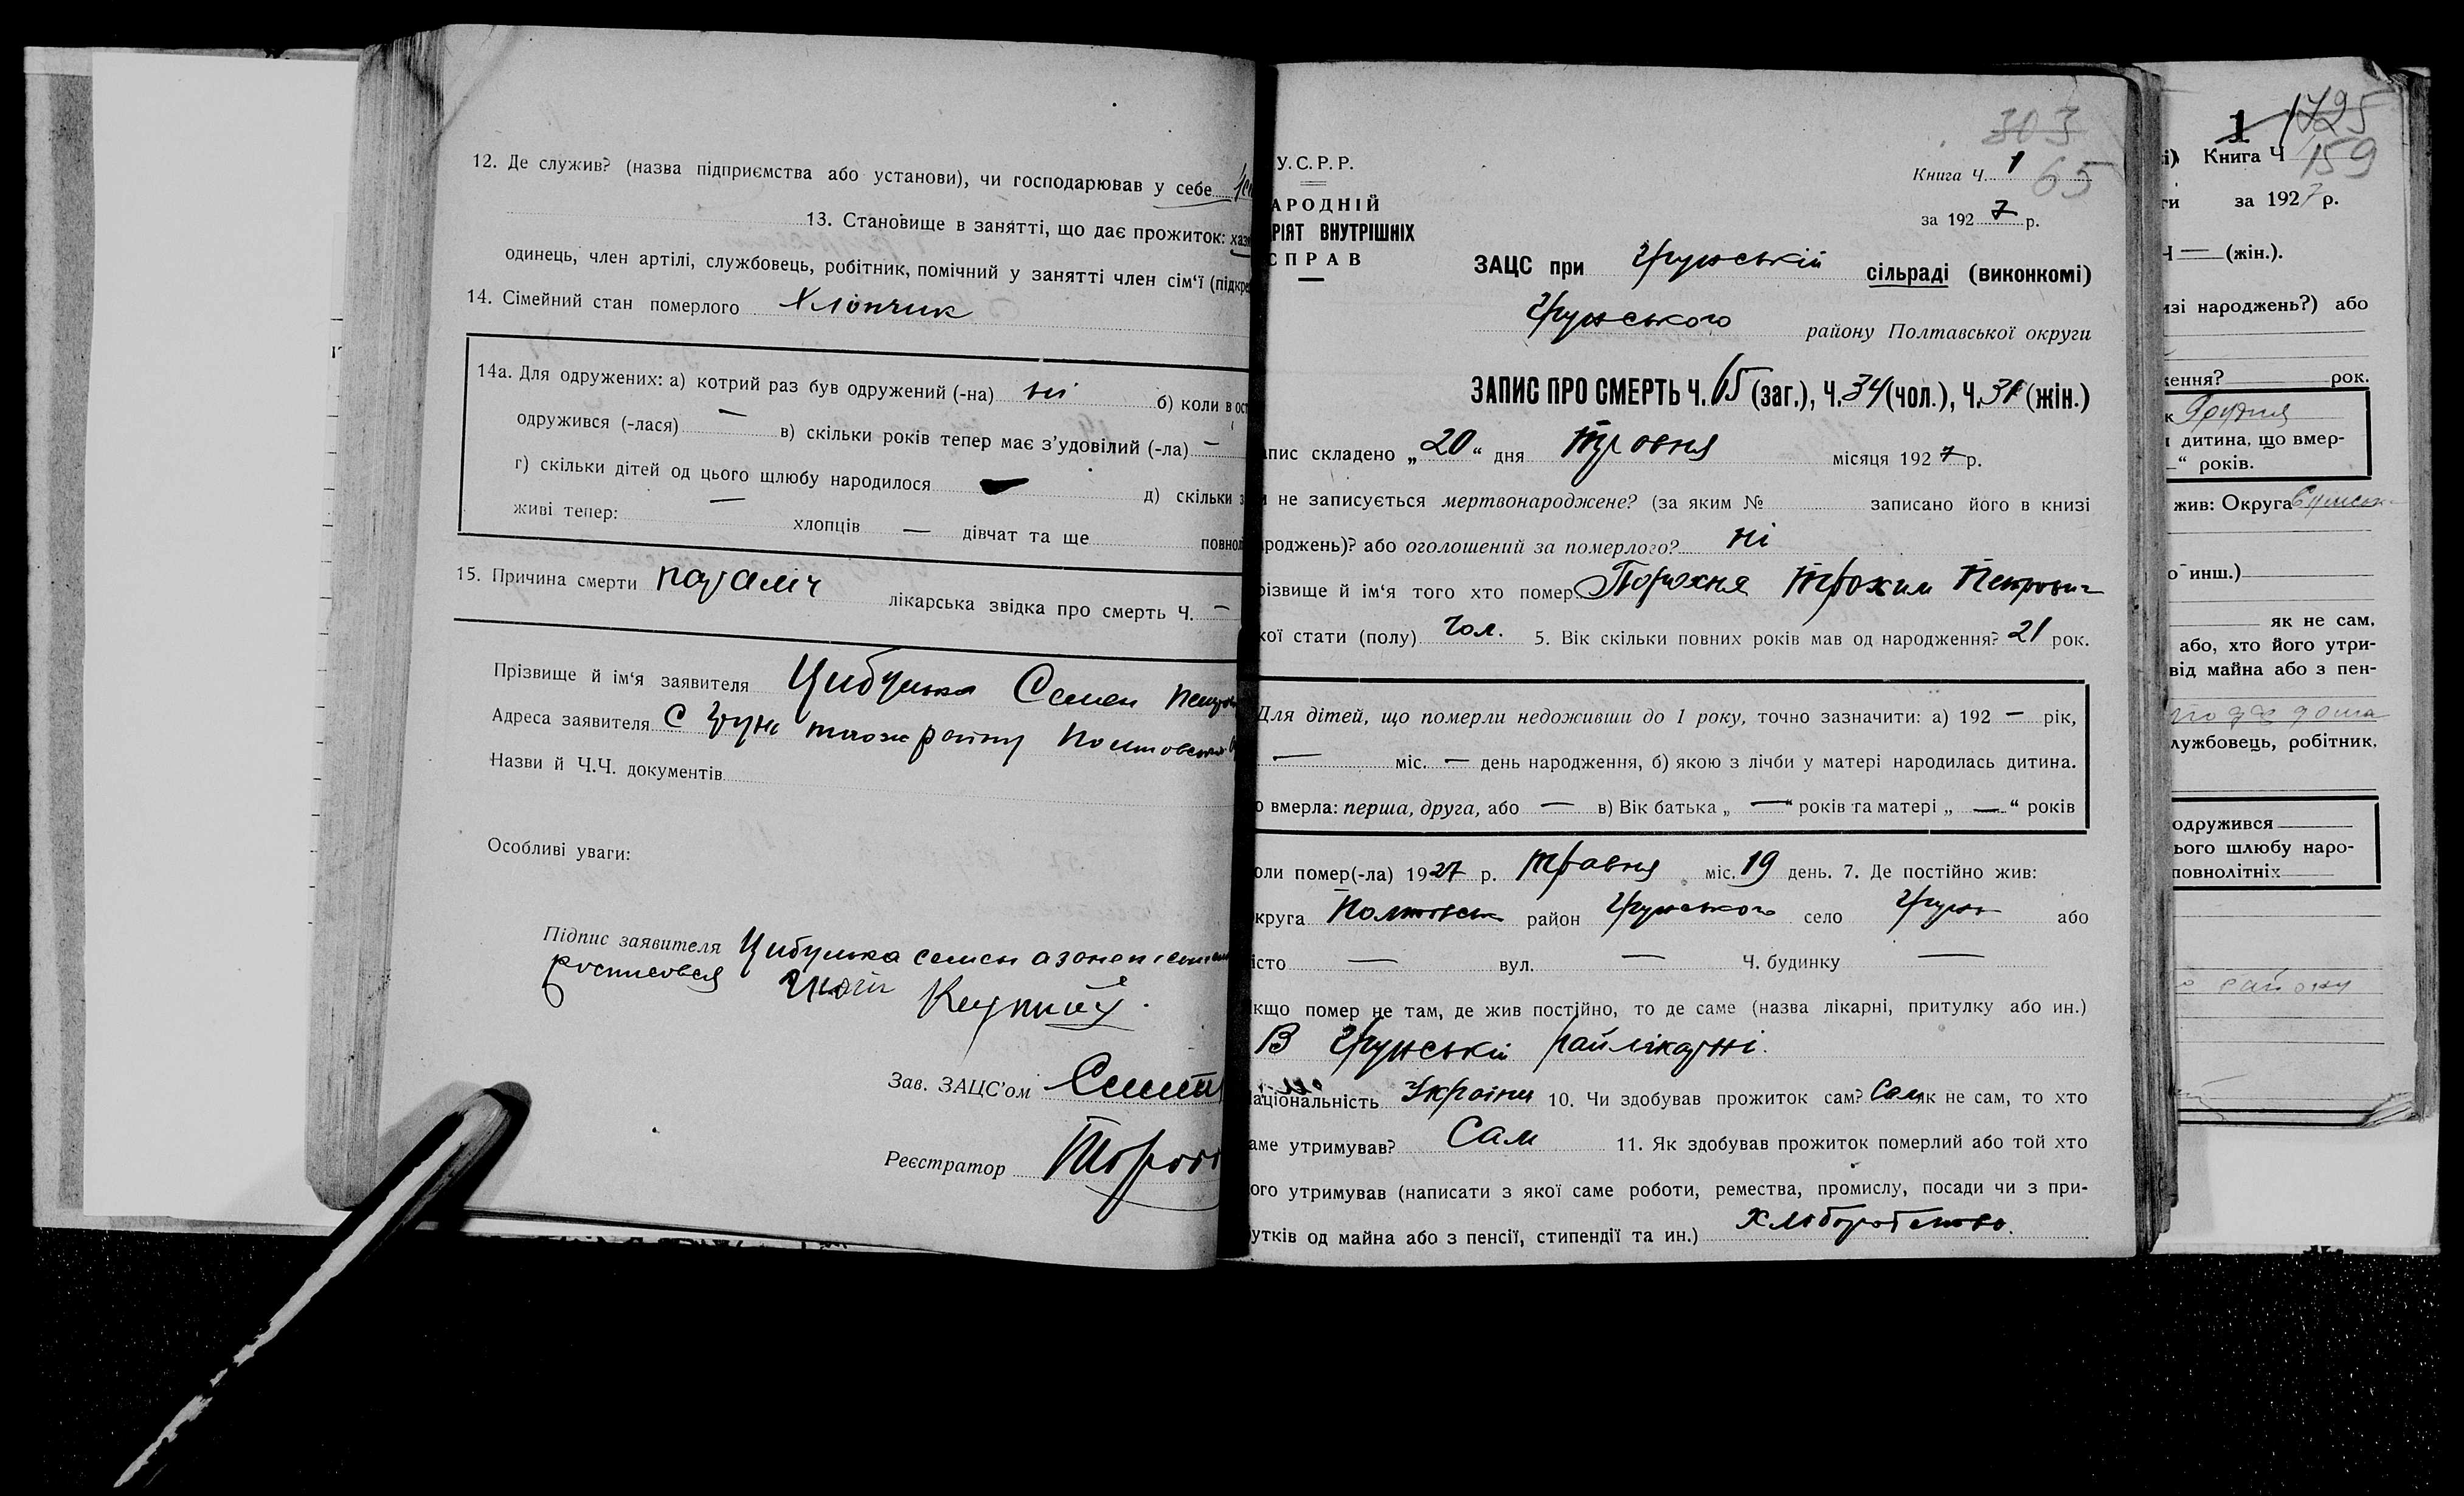 12. Де служив? (назва підприємства або установи), чи господарював у себе
13. Становище в занятті, що дає прожиток: хаз
одинець, член артілі, службовець, робітник, помічний у занятті член сім'ї (підкре
14. Сімейний стан померлого Хлопчик
14а. Для одружених: а) котрий раз був одружений (-на) ні б) коли в ост
одружився (-лася) — в) скільки років тепер має з'удовілий (-ла) —
г) скільки дітей од цього щлюбу народилося — д) скільки з
живі тепер: — хлопців — дівчат та ще повнол
15. Причина смерти параліч лікарська звідка про смерть Ч. —
Прізвище й ім'я заявителя Цибулька Семен
Адреса заявителя С Грунь
Назви й Ч.Ч. документів
Особливі уваги:
Підпис заявителя Цибулька семен
росписовся
Зав. ЗАЦС'ом
Реєстратор
303
У.С.Р.Р.
Книга Ч. 1 65
АРОДНІЙ
РІЯТ ВНУТРІШНІХ
СПРАВ
за 1927 р.
ЗАЦС при Грунській сільраді (виконкомі)
Грунського району Полтавської округи
ЗАПИС ПРО СМЕРТЬ Ч. 65 (заг.), Ч. 34 (чол.), Ч. 31 (жін.)
пис складено „20“ дня Травня місяця 1927 р.
и не записується мертвонароджене? (за яким № записано його в книзі
ароджень)? або оголошений за померлого? ні
різвище й ім'я того хто помер Порохня Трохим Петрович
кої стати (полу) Чол. 5. Вік скільки повних років мав од народження? 21 рок.
Для дітей, що померли недоживши до 1 року, точно зазначити: а) 192 — рік,
— міс. — день народження, б) якою з лічби у матері народилась дитина.
о вмерла: перша, друга, або — в) Вік батька „ — “ років та матері „ — “ років
оли помер(-ла) 1927 р. Травня міс. 19 день. 7. Де постійно жив:
круга Полтавськ район Грунського село Грунь або
істо — вул. — Ч. будинку —
кщо помер не там, де жив постійно, то де саме (назва лікарні, притулку або ин.)
В Грунській райлікарні.
аціональність Україн 10. Чи здобував прожиток сам? Сам як не сам, то хто
аме утримував? Сам 11. Як здобував прожиток померлий або той хто
ого утримував (написати з якої саме роботи, ремества, промислу, посади чи з при-
утків од майна або з пенсії, стипендії та ин.) Хліборобство.
1 1725
і) Книга Ч 159
ти за 1927 р.
Ч — (жін.).
изі народжень?) або
ження? рок.
к Грудня
дитина, що вмер-
—“ років.
жив: Округа Сумськ
о инш.)
як не сам,
або, хто його утри-
від майна або з пен-
лужбовець, робітник,
одружився
ього шлюбу наро-
повнолітніх
району